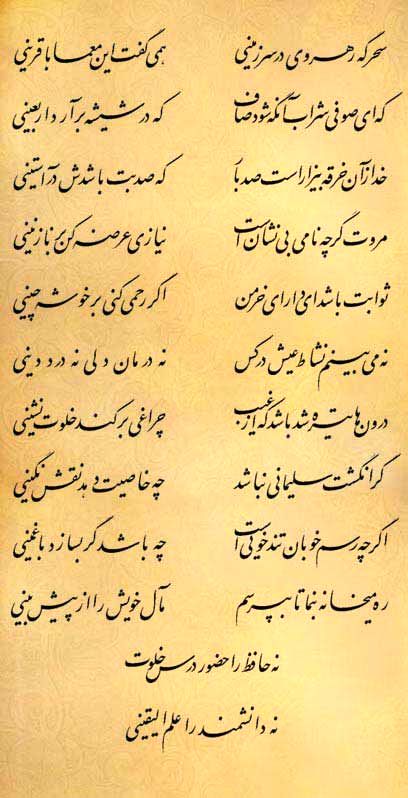 سحرگه رهروی در سرزمینی همی گفت این معما با قرینی
که ای صوفی شراب آنگه شود صاف که در شیشه برآرد اربعینی
خدا زآن خرقه بیزار است صد بار که صد بت باشدش در آستینی
مروت گرچه نامی بی نشان است نیازی عرضه کن بر نازنینی
ثوابت باشد ای دارای خرمن اگر رحمی کنی بر خوشه چینی
نه می بینم نشاط عیش در کس نه درمان دلی نه درد دینی
درون ها تیره شد باشد که از غیب چراغی برکند خلوت نشینی
گر انگشت سلیمانی نباشد چه خاصیت دهد نقش نگینی
اگرچه رسم خوبان تندخویی است چه باشد گر بسازد با غمینی
ره میخانه بنما تا بپرسم مآل خویش را از پیش بینی
نه حافظ را حضور درس خلوت
نه دانشمند را علم الیقینی